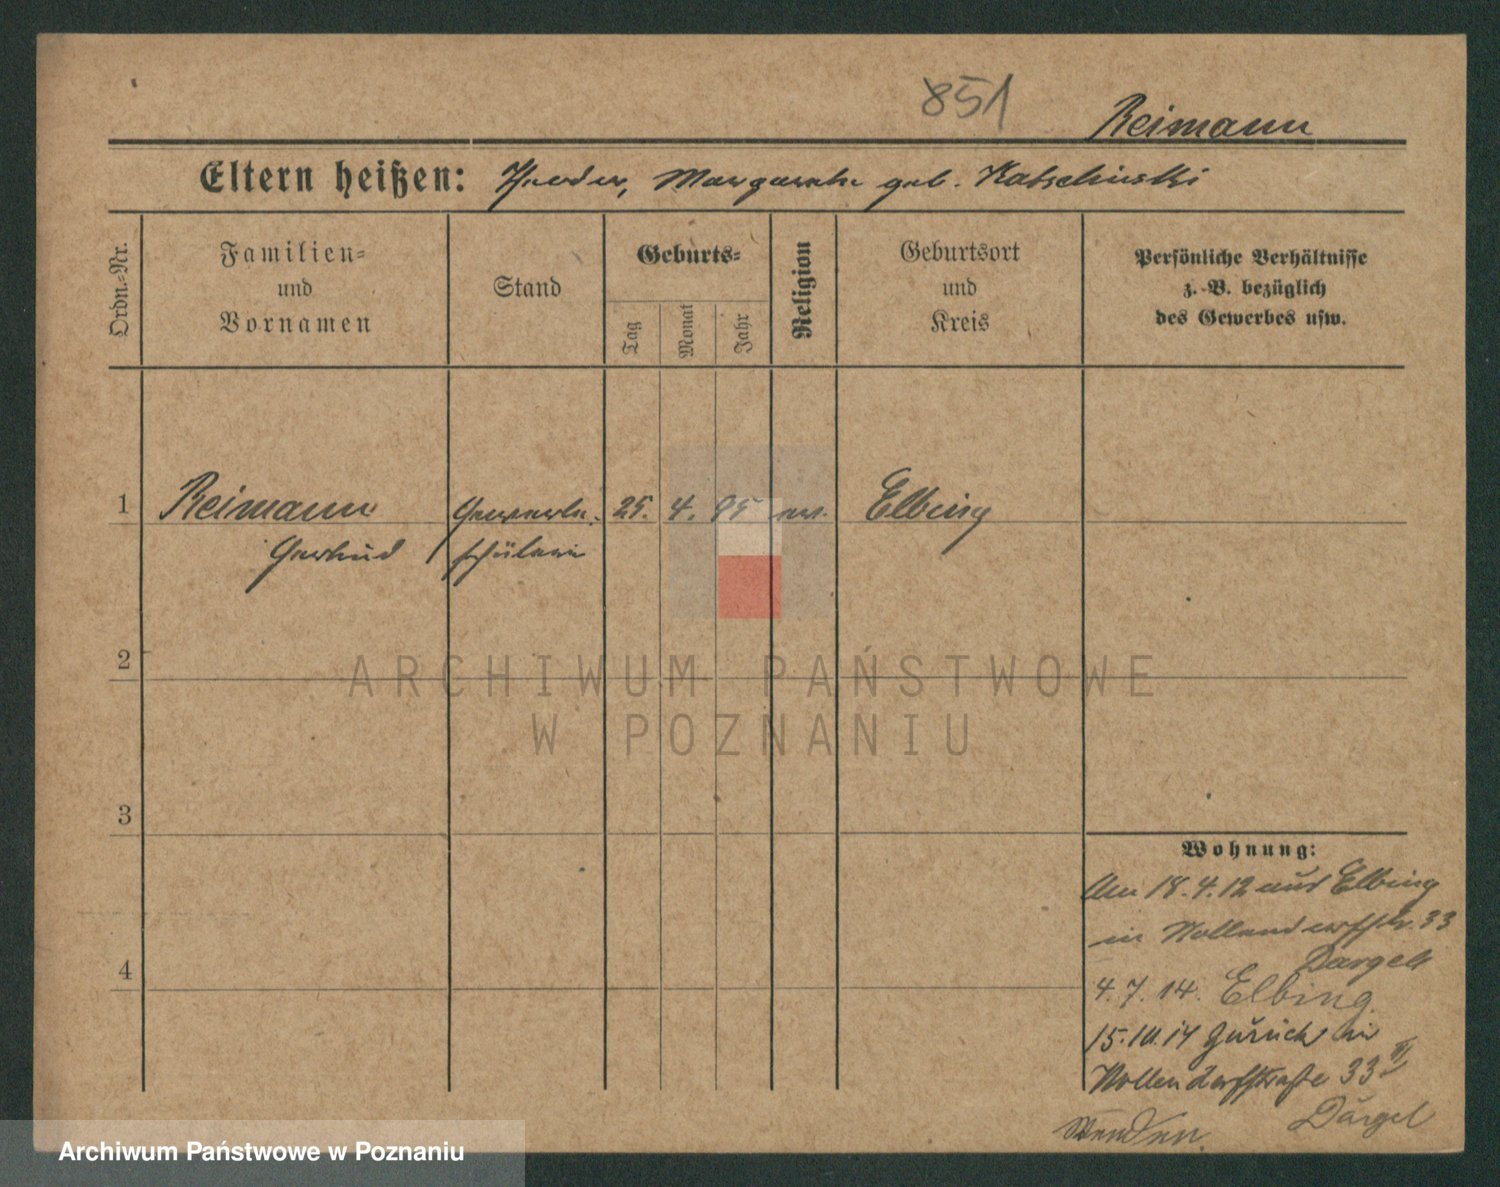 851
Reimann
Eltern heißen: Margarethe geb. Katschinski
Ordn.-Nr.
Familien-
und
Vornamen
Stand
Geburts-
Tag
Monat
Jahr
Religion
Geburtsort
und
Kreis
Persönliche Verhältnisse
z. B. bezüglich
des Gewerbes usw.
1
Reimann
Gewerbe.
25.
4.
95
ev.
Elbing
Gertrud
schülerin
2
ARCHIWUM PAŃSTWOWE
W POZNANIU
3
4
Wohnung:
Am 18.4.12 aus Elbing
in Nollendorfstr. 33
Dargel
4.7.14. Elbing
15.10.14 zurück in
Nollendorfstraße 33 II
Dargel
Wenden
Archiwum Państwowe w Poznaniu